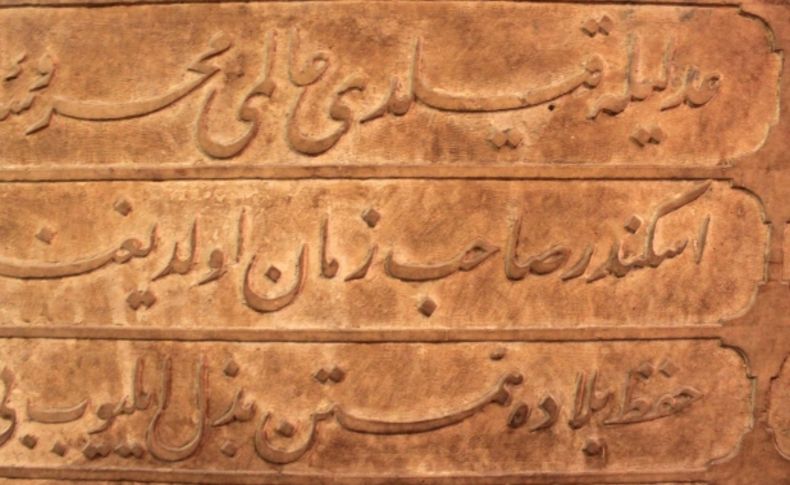 عدليله قيلدی عالمی بحر و
اسكندر صاحب زمان اولديغن
حفظ بلاده همتن بذل ايليوب بی